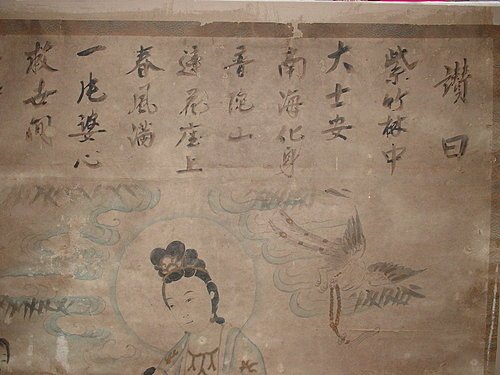 讃曰
紫竹林中
大士安
南海化身
普陀山
蓮花座上
春風滿
一片婆心
救世间